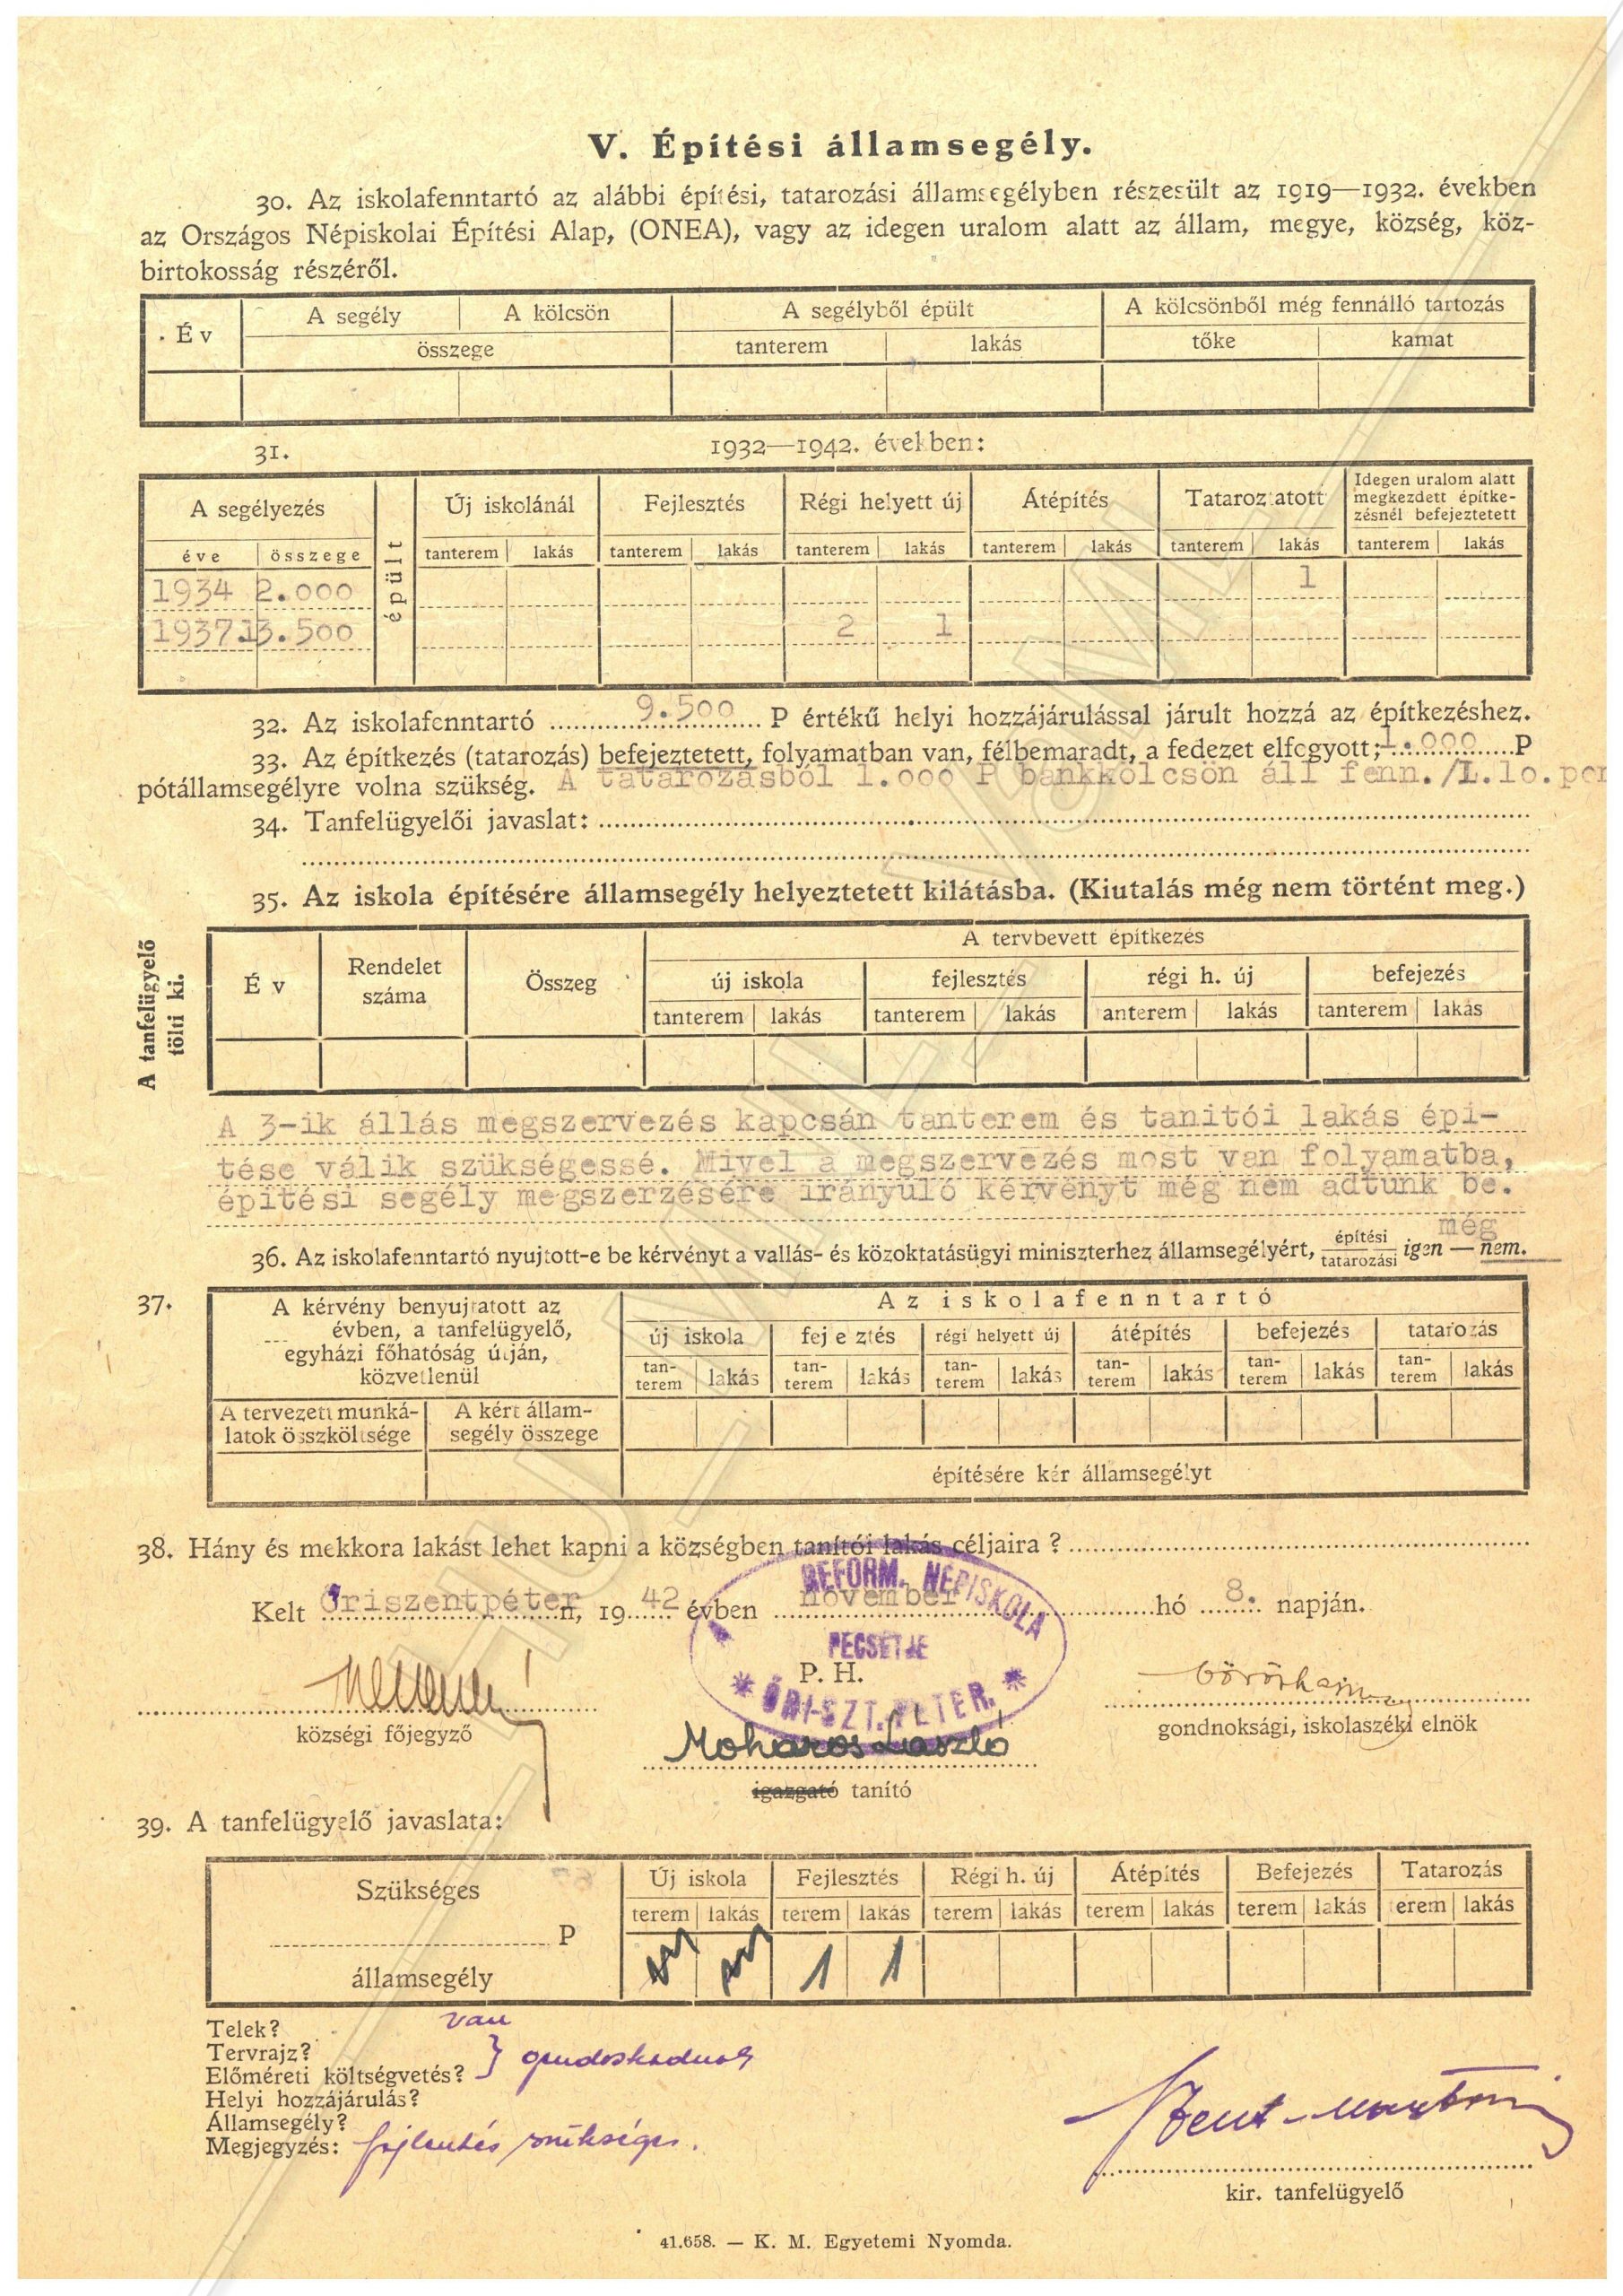 V. Építési államsegély.
30. Az iskolafenntartó az alábbi építési, tatarozási államsegélyben részesült az 1919—1932. években
az Országos Népiskolai Építési Alap, (ONEA), vagy az idegen uralom alatt az állam, megye, község, köz-
birtokosság részéről.
Év
A segély A kölcsön
összege
A segélyből épült
tanterem lakás
A kölcsönből még fennálló tartozás
tőke kamat
31. 1932—1942. években:
A segélyezés
éve összege
épült
Új iskolánál Fejlesztés Régi helyett új Átépítés Tataroztatott
Idegen uralom alatt
megkezdett építke-
zésnél befejeztetett
tanterem lakás tanterem lakás tanterem lakás tanterem lakás tanterem lakás tanterem lakás
1934 2.000 1
1937.13.500 2 1
32. Az iskolafenntartó 9.500 P értékű helyi hozzájárulással járult hozzá az építkezéshez.
33. Az építkezés (tatarozás) befejeztetett, folyamatban van, félbemaradt, a fedezet elfogyott; 1.000 P
pótállamsegélyre volna szükség. A tatarozásból 1.000 P bankkölcsön áll fenn./L.10.
34. Tanfelügyelői javaslat:
35. Az iskola építésére államsegély helyeztetett kilátásba. (Kiutalás még nem történt meg.)
A tanfelügyelő
tölti ki.
Év
Rendelet
száma
Összeg
A tervbevett építkezés
új iskola fejlesztés régi h. új befejezés
tanterem lakás tanterem lakás anterem lakás tanterem lakás
A 3-ik állás megszervezés kapcsán tanterem és tanitói lakás épi-
tése válik szükségessé. Mivel a megszervezés most van folyamatba,
épitési segély megszerzésére irányuló kérvényt még nem adtunk be.
még
36. Az iskolafenntartó nyujtott-e be kérvényt a vallás- és közoktatásügyi miniszterhez államsegélyért, építési tatarozási igen — nem.
37.
A kérvény benyujtatott az
évben, a tanfelügyelő,
egyházi főhatóság útján,
közvetlenül
A tervezett munká-
latok összköltsége
A kért állam-
segély összege
Az iskolafenntartó
új iskola fej e ztés régi helyett új átépítés befejezés tatarozás
tan-
terem lakás tan-
terem lakás tan-
terem lakás tan-
terem lakás tan-
terem lakás tan-
terem lakás
építésére kér államsegélyt
38. Hány és mekkora lakást lehet kapni a községben tanítói lakás céljaira ?
Kelt Őriszentpéter n, 19 42 évben november hó 8. napján.
REFORM. NÉPISKOLA
PECSÉTJE
* ŐRI-SZT.PÉTER. *
P. H.
községi főjegyző
gondnoksági, iskolaszéki elnök
Moharos László
igazgató tanító
39. A tanfelügyelő javaslata:
Szükséges
P
államsegély
Új iskola Fejlesztés Régi h. új Átépítés Befejezés Tatarozás
terem lakás terem lakás terem lakás terem lakás terem lakás erem lakás
1 1
Telek? van
Tervrajz?
Előméreti költségvetés? } gondoskodnak
Helyi hozzájárulás?
Államsegély?
Megjegyzés: fejlesztés szükséges.
kir. tanfelügyelő
41.658. — K. M. Egyetemi Nyomda.